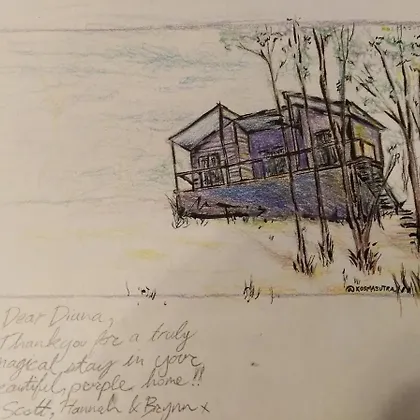 @KORMASUTRA
Dear Diana,
Thankyou for a truly
magical stay in your
beautiful purple home!!
Scott, Hannah & Brynn x